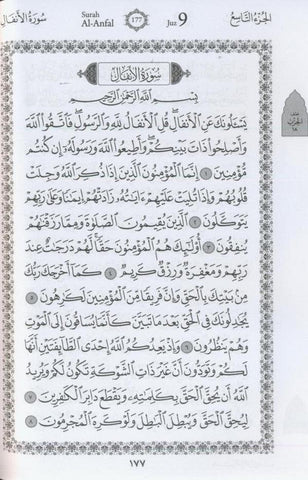 سُورَةُ الأَنفَال
Surah
Al-Anfal
177
Juz 9
الجُزْءُ التَّاسِعُ
سُورَةُ الأَنفَالِ
بِسْمِ ٱللَّهِ ٱلرَّحْمَٰنِ ٱلرَّحِيمِ
يَسْـَٔلُونَكَ عَنِ ٱلْأَنفَالِ ۖ قُلِ ٱلْأَنفَالُ لِلَّهِ وَٱلرَّسُولِ ۖ فَٱتَّقُوا۟ ٱللَّهَ
وَأَصْلِحُوا۟ ذَاتَ بَيْنِكُمْ ۖ وَأَطِيعُوا۟ ٱللَّهَ وَرَسُولَهُۥٓ إِن كُنتُم
مُّؤْمِنِينَ ١ إِنَّمَا ٱلْمُؤْمِنُونَ ٱلَّذِينَ إِذَا ذُكِرَ ٱللَّهُ وَجِلَتْ
قُلُوبُهُمْ وَإِذَا تُلِيَتْ عَلَيْهِمْ ءَايَٰتُهُۥ زَادَتْهُمْ إِيمَٰنًا وَعَلَىٰ رَبِّهِمْ
يَتَوَكَّلُونَ ٢ ٱلَّذِينَ يُقِيمُونَ ٱلصَّلَوٰةَ وَمِمَّا رَزَقْنَٰهُمْ
يُنفِقُونَ ٣ أُو۟لَٰٓئِكَ هُمُ ٱلْمُؤْمِنُونَ حَقًّا ۚ لَّهُمْ دَرَجَٰتٌ عِندَ
رَبِّهِمْ وَمَغْفِرَةٌ وَرِزْقٌ كَرِيمٌ ٤ كَمَآ أَخْرَجَكَ رَبُّكَ
مِنۢ بَيْتِكَ بِٱلْحَقِّ وَإِنَّ فَرِيقًا مِّنَ ٱلْمُؤْمِنِينَ لَكَٰرِهُونَ ٥
يُجَٰدِلُونَكَ فِى ٱلْحَقِّ بَعْدَمَا تَبَيَّنَ كَأَنَّمَا يُسَاقُونَ إِلَى ٱلْمَوْتِ
وَهُمْ يَنظُرُونَ ٦ وَإِذْ يَعِدُكُمُ ٱللَّهُ إِحْدَى ٱلطَّآئِفَتَيْنِ أَنَّهَا
لَكُمْ وَتَوَدُّونَ أَنَّ غَيْرَ ذَاتِ ٱلشَّوْكَةِ تَكُونُ لَكُمْ وَيُرِيدُ
ٱللَّهُ أَن يُحِقَّ ٱلْحَقَّ بِكَلِمَٰتِهِۦ وَيَقْطَعَ دَابِرَ ٱلْكَٰفِرِينَ ٧
لِيُحِقَّ ٱلْحَقَّ وَيُبْطِلَ ٱلْبَٰطِلَ وَلَوْ كَرِهَ ٱلْمُجْرِمُونَ ٨
١٧٧